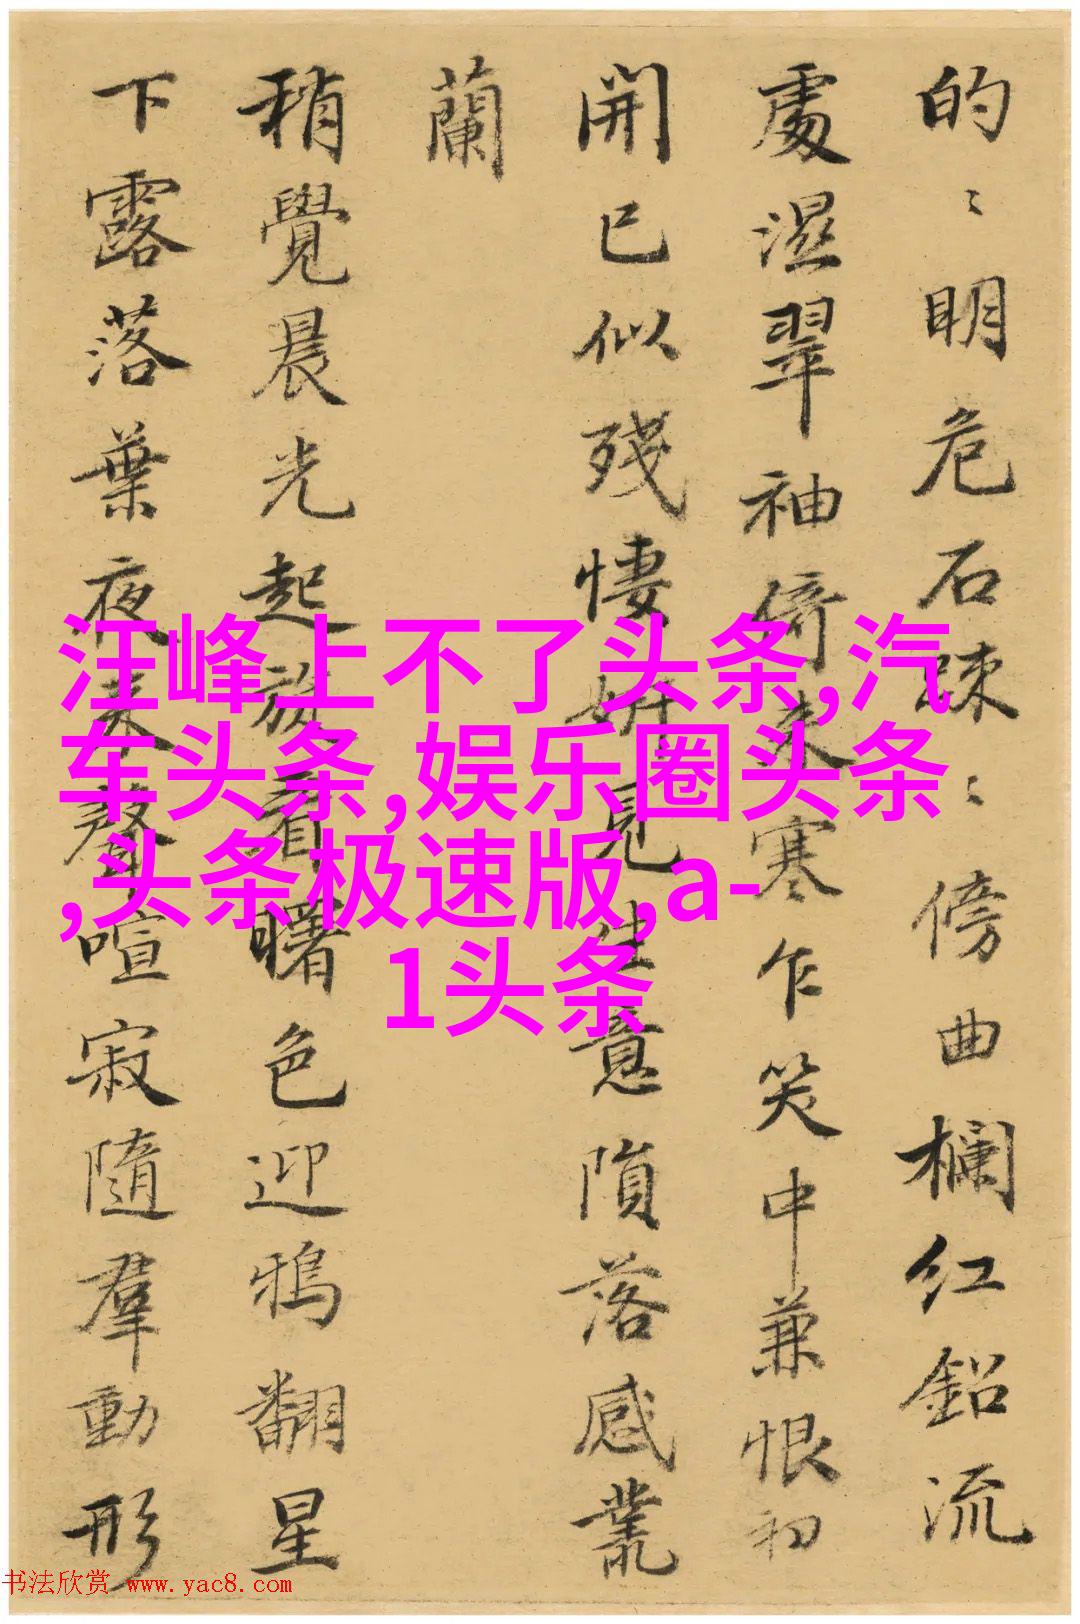 的〻明危石疎〻傍曲欄红鈆流
處濕翠袖倚来寒乍笑中兼恨初
開已似殘悽妍見生意隕落感叢
蘭
稍覺晨光起旋看曙色迎鴉翻星
下露落葉夜来聲喧寂隨羣動形
汪峰上不了头条,汽
车头条,娱乐圈头条
,头条极速版,a-
1头条
书法欣赏 www.yac8.com